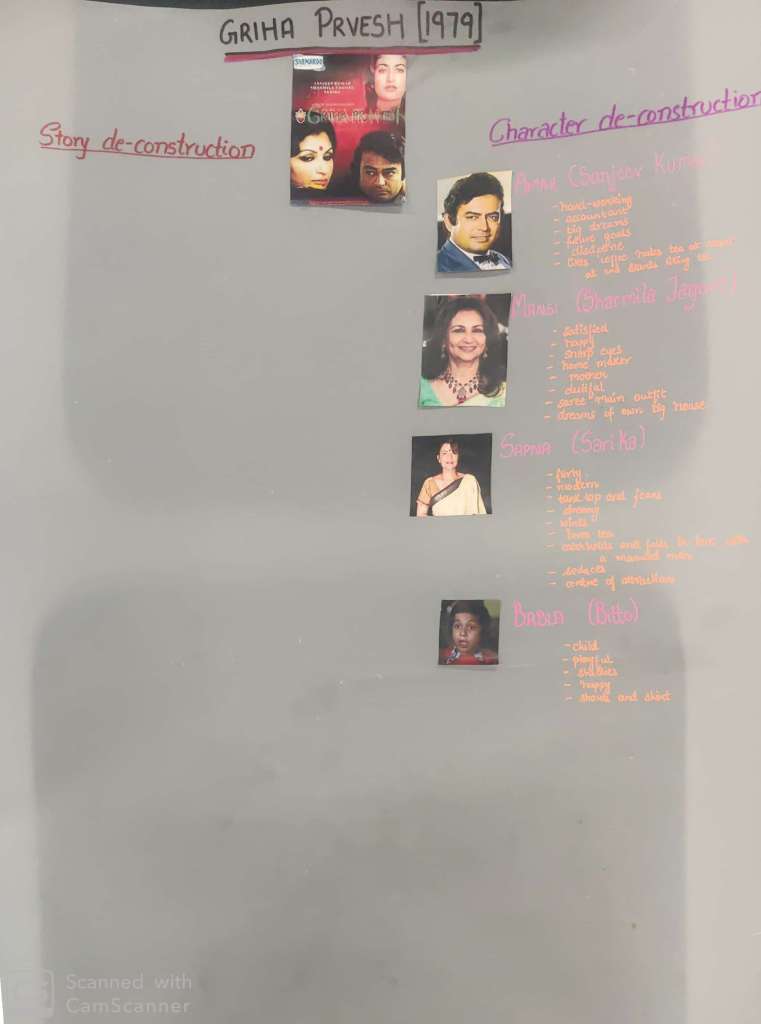 GRIHA PRVESH [1979]
SHEMAROO
SANJEEV KUMAR
SHARMILA TAGORE
SARIKA
Story de-construction
Character de-construction
(Sanjeev Kumar
- hard-working
- accountant
- big dreams
- future goals
- discipline
- likes coffee hates tea at
at end starts
MANSI (Sharmila Tagore)
- satisfied
- happy
- sharp eyes
- home maker
- mother
- dutiful
- saree main outfit
- dreams of own big house
SAPNA (Sarika)
- modern
- tank top and jeans
- loves tea
and falls in love with
a married man
- seduces
- centre of attraction
BABLA (Bitto)
- child
- playful
- studies
- happy
- shorts and shirt
Scanned with
CamScanner